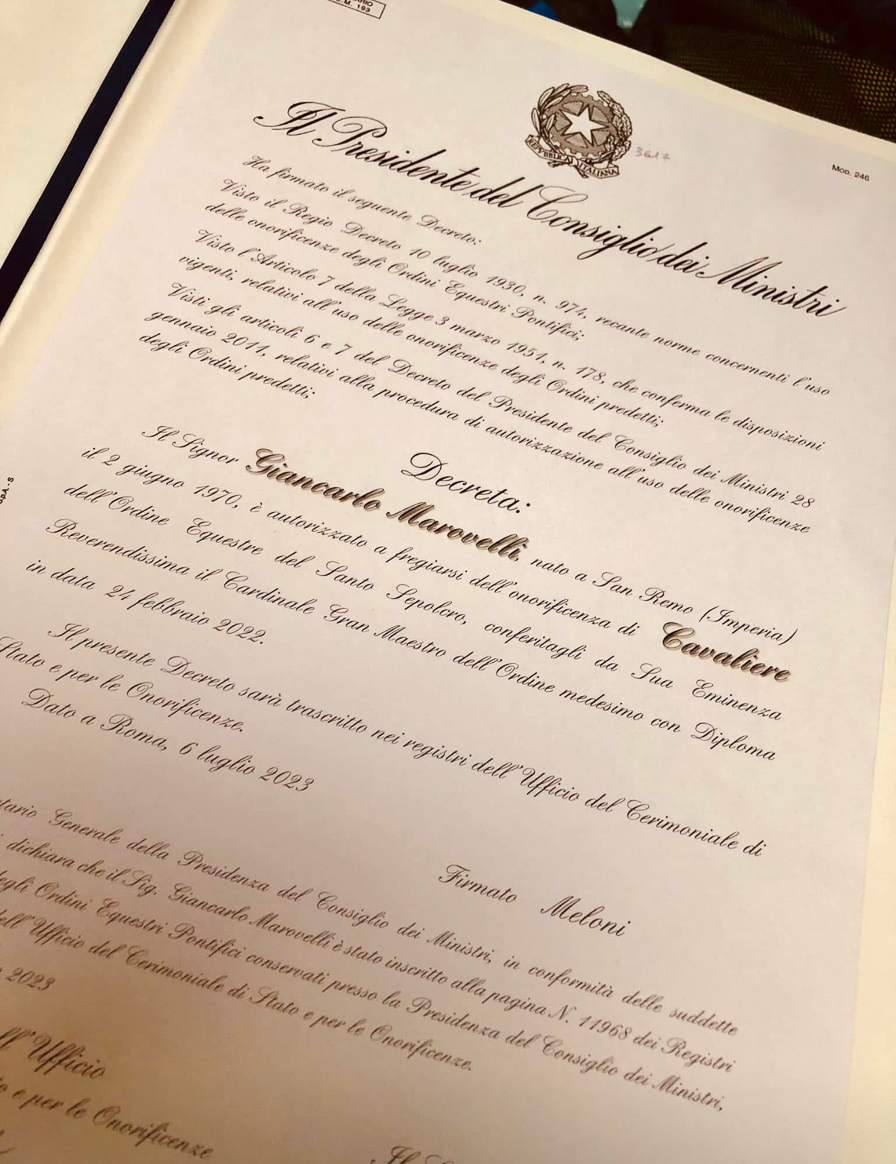 S.M. 193
REPVBBLICA ITALIANA
3617
Mod. 246
Il Presidente del Consiglio dei Ministri
Ha firmato il seguente Decreto:
Visto il Regio Decreto 10 luglio 1930, n. 974, recante norme concernenti l'uso
delle onorificenze degli Ordini Equestri Pontifici;
Visto l'Articolo 7 della Legge 3 marzo 1951, n. 178, che conferma le disposizioni
vigenti, relativi all'uso delle onorificenze degli Ordini predetti;
Visti gli articoli 6 e 7 del Decreto del Presidente del Consiglio dei Ministri 28
gennaio 2011, relativi alla procedura di autorizzazione all'uso delle onorificenze
degli Ordini predetti;
Decreta:
Il Signor Giancarlo Marovelli, nato a San Remo (Imperia)
il 2 giugno 1970, è autorizzato a fregiarsi dell'onorificenza di Cavaliere
dell'Ordine Equestre del Santo Sepolcro, conferitagli da Sua Eminenza
Reverendissima il Cardinale Gran Maestro dell'Ordine medesimo con Diploma
in data 24 febbraio 2022.
Il presente Decreto sarà trascritto nei registri dell'Ufficio del Cerimoniale di
Stato e per le Onorificenze.
Dato a Roma, 6 luglio 2023
Firmato Meloni
tario Generale della Presidenza del Consiglio dei Ministri, in conformità delle suddette
dichiara che il Sig. Giancarlo Marovelli è stato inscritto alla pagina N. 11968 dei Registri
egli Ordini Equestri Pontifici conservati presso la Presidenza del Consiglio dei Ministri,
dell'Ufficio del Cerimoniale di Stato e per le Onorificenze.
2023
ll'Ufficio
to e per le Onorificenze